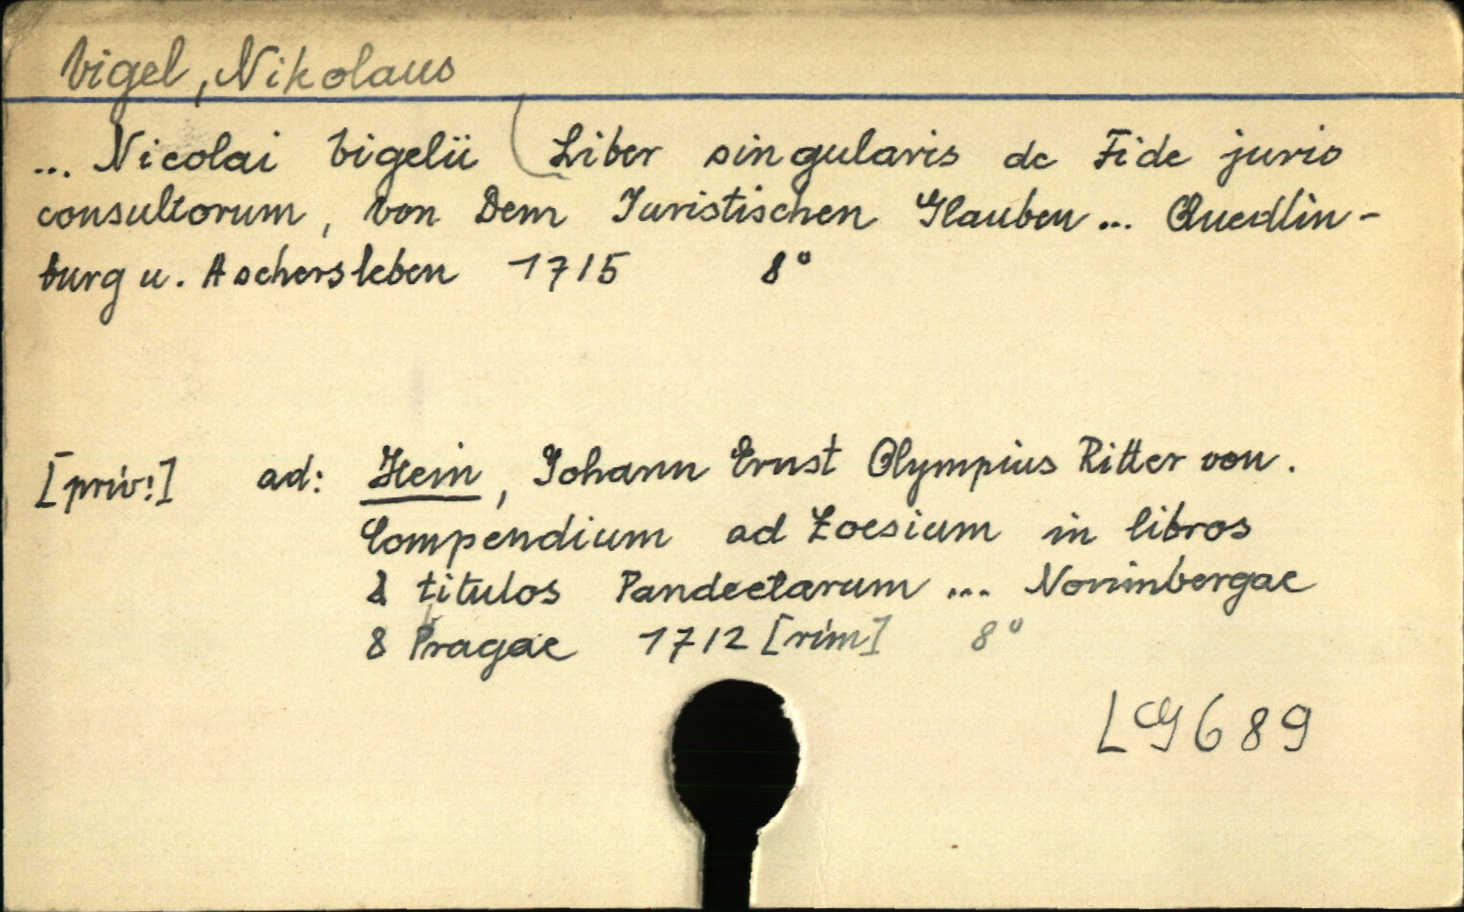 Vigel, Nikolaus
... Nicolai Vigelii Liber singularis de Fide juris
consultorum, Von Dem Juristischen Glauben ... Quedlin-
burg u. Aschersleben 1715 8°
[priv!] ad: Hein, Johann Ernst Olympius Ritter von.
Compendium ad Zoesium in libros
& titulos Pandectarum ... Norimbergae
& Pragae 1712 [rim] 8°
LG 689